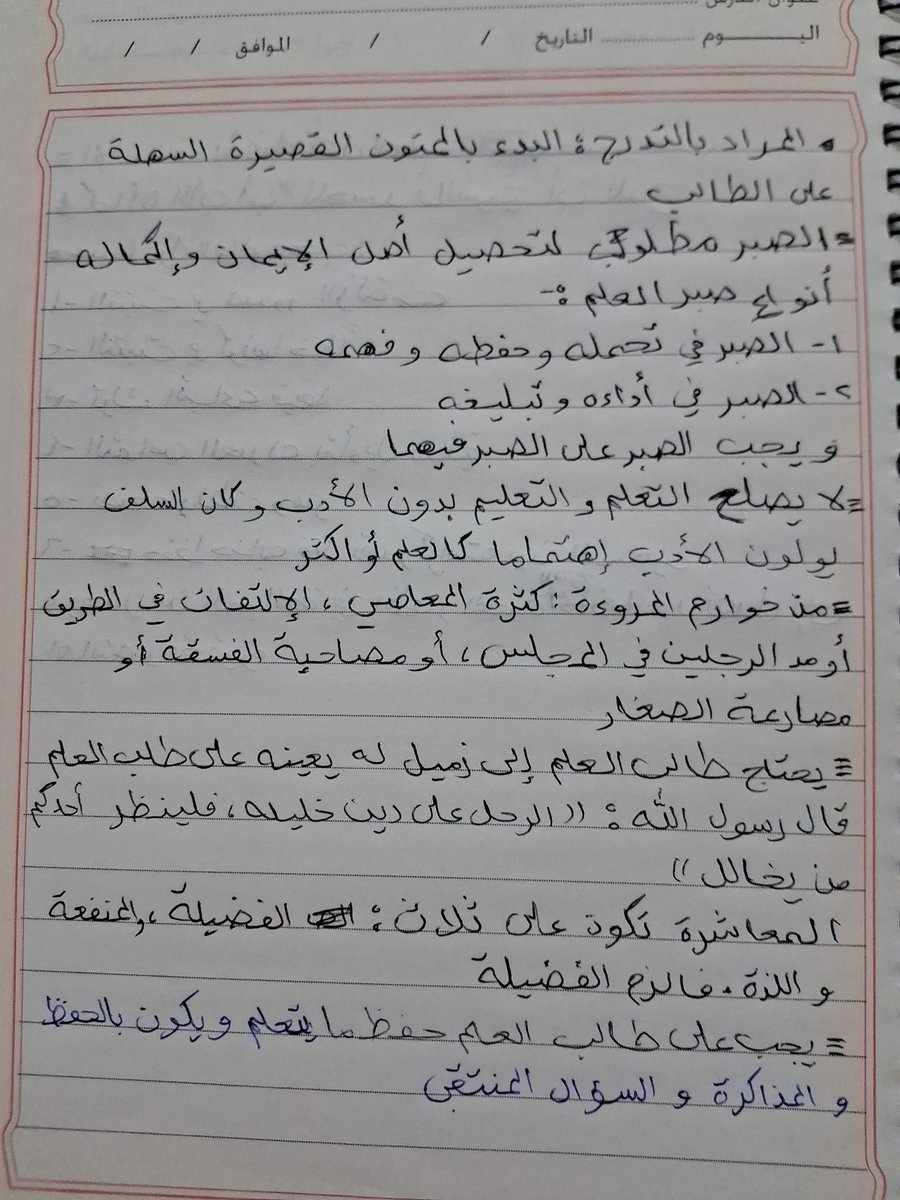 اليـــــــوم ........................ التاريخ / / الموافق / /
• المراد بالتدرج : البدء بالمتون القصيرة السهلة
على الطالب
= الصبر مطلوب لتحصيل أصل الإيمان وإكماله
أنواع صبر العلم :-
١- الصبر في تحمله وحفظه وفهمه
٢- الصبر في أداءه وتبليغه
و يجب الصبر على الصبر فيهما
= لا يصلح التعلم و التعليم بدون الأدب و كان السلف
يولون الأدب إهتماما كالعلم أو اكثر
= من خوارم المروءة : كثرة المعاصي ، الإلتفات في الطريق
أو مد الرجلين في المجلس ، أو مصاحبة الفسقة أو
مصارعة الصغار
= يحتاج طالب العلم إلى زميل له يعينه على طلب العلم
قال رسول الله : (( الرجل على دين خليله ، فلينظر أحدكم
من يخالل ))
المعاشرة تكون على ثلاث : الفضيلة ، والمنفعة
و اللذة . فالزم الفضيلة
= يجب على طالب العلم حفظ ما يتعلم و يكون بالحفظ
و المذاكرة و السؤال المنتقى